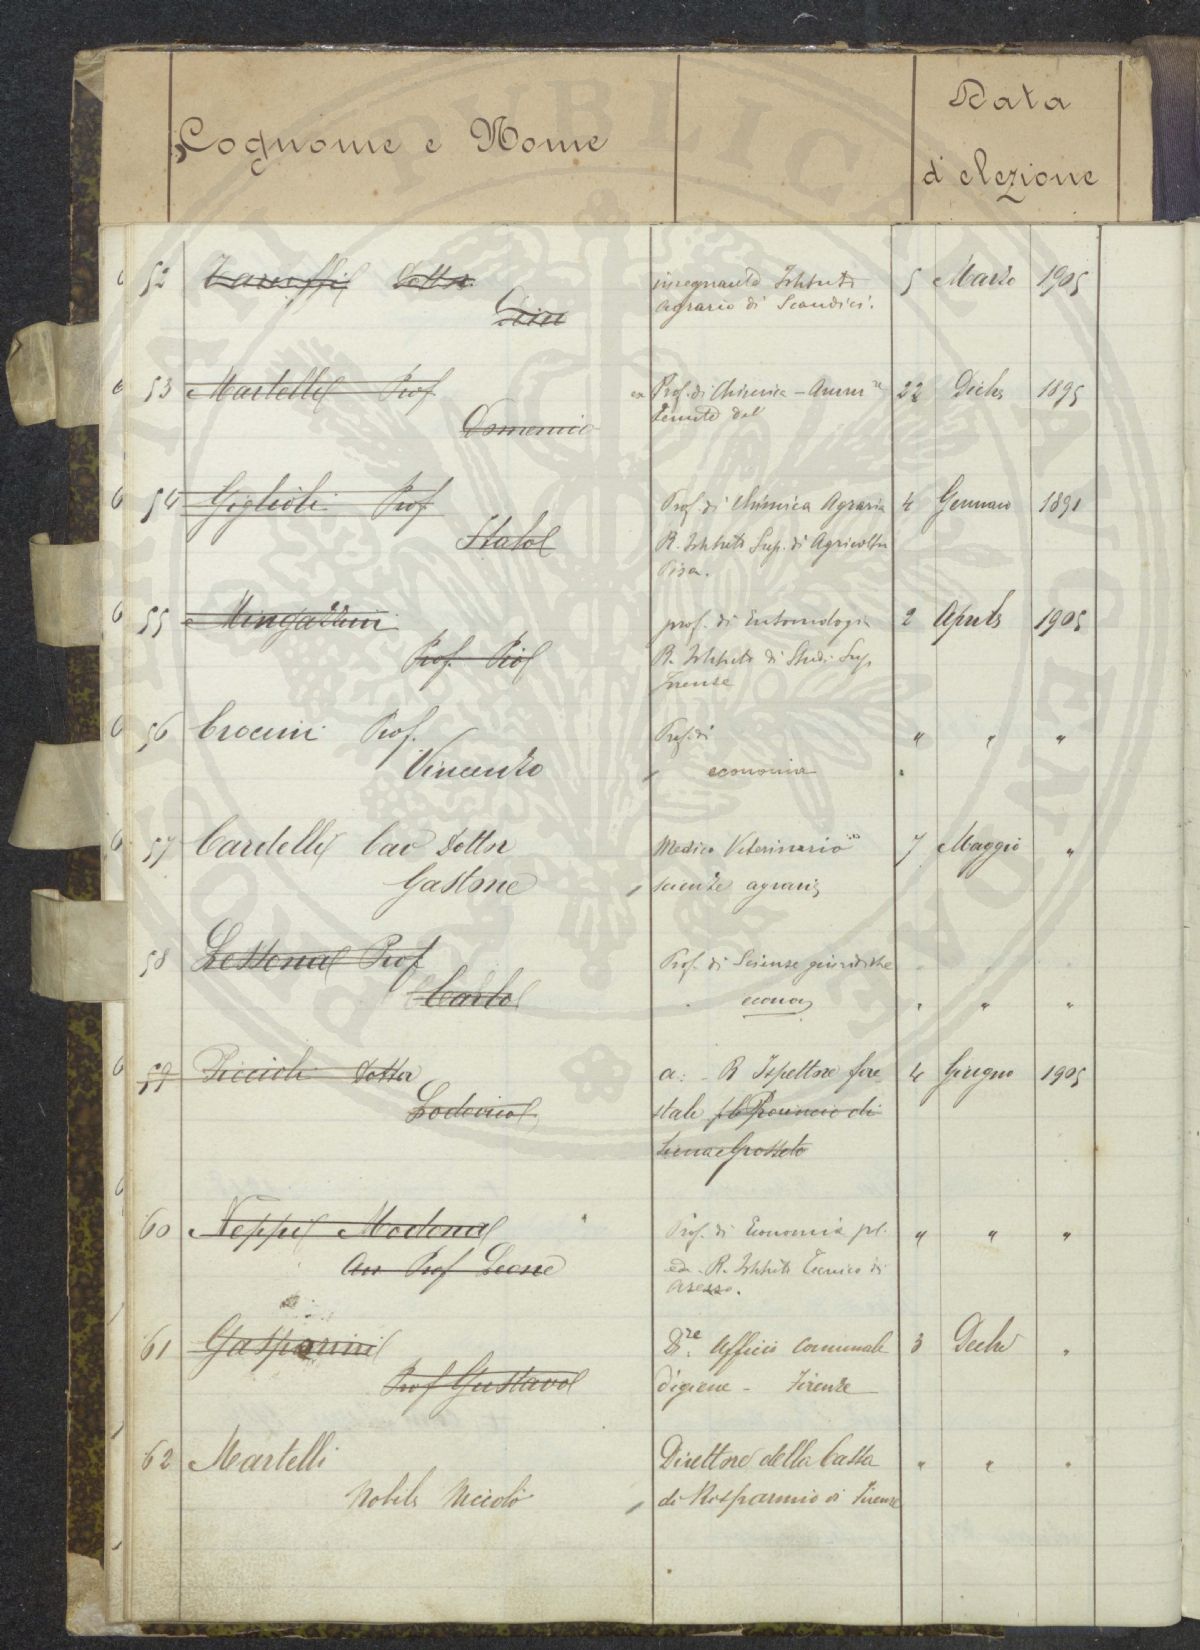 Cognome e Nome
Data
d'elezione
52 Taruffi Dottor insegnante Istituto 5 Marzo 1905
Dino agrario di Scandicci.
53 Martelli Prof ex Prof. di Chimica - Amm re 22 Dicbe 1895
Domenico Tenute del
54 Giglioli Prof Prof. di Chimica Agraria 4 Gennaio 1891
Italo R. Istituto Sup. di Agricoltu
Pisa.
55 Mingazzini prof. di Entomologia 2 Aprile 1905
Prof. Pio R. Istituto di Studi Sup.
Firenze
56 Crocini Prof. Prof. di " " "
Vincenzo economia
57 Cardelli Cav Dottor Medico Veterinario 7 Maggio "
Gastone scienze agrarie
58 Lessona Prof Prof. di Scienze giuridiche
Carlo econo " " "
59 Piccioli Dottor a: - R Ispettore fore 4 Giugno 1905
Lodovico stale Provincie di
Siena e Grosseto
60 Neppi Modena Prof. di Economia pol. " " "
Avv Prof Leone ed. R. Istituto Tecnico di
Arezzo.
61 Gasparini Dre Ufficio Comunale 3 Decbe "
Prof Gustavo d'igiene - Firenze
62 Martelli Direttore della Cassa " " "
Nobile Niccolò di Risparmio di Firenze